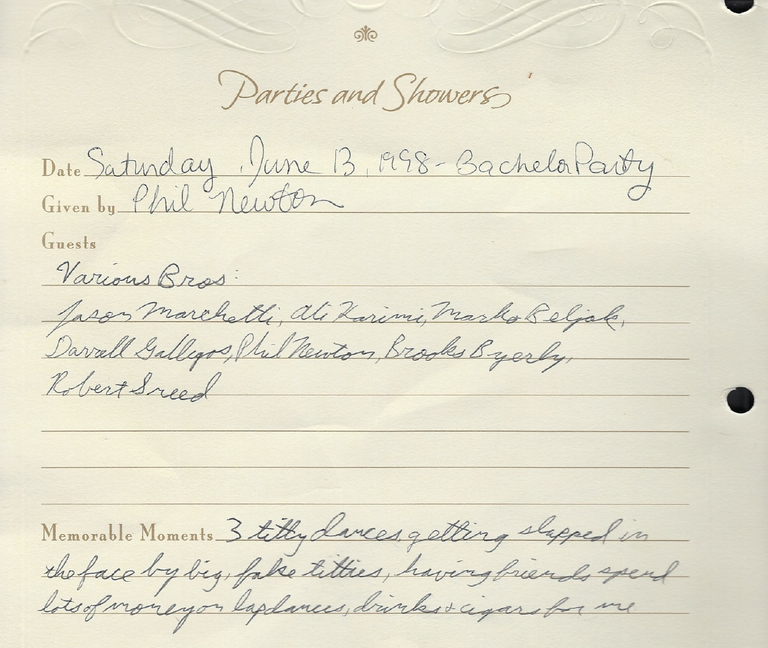 Parties and Showers
Date Saturday, June 13, 1998 - Bachelor Party
Given by Phil Newton
Guests
Various Bros:
Jason Marchetti, Ali Karimi, Marko Beljak,
Darrell Gallegos, Phil Newton, Brooks Byerly,
Robert Sreed
Memorable Moments 3 titty dances, getting slapped in
the face by big, fake titties, having friends spend
lots of money on lapdances, drinks + cigars for me